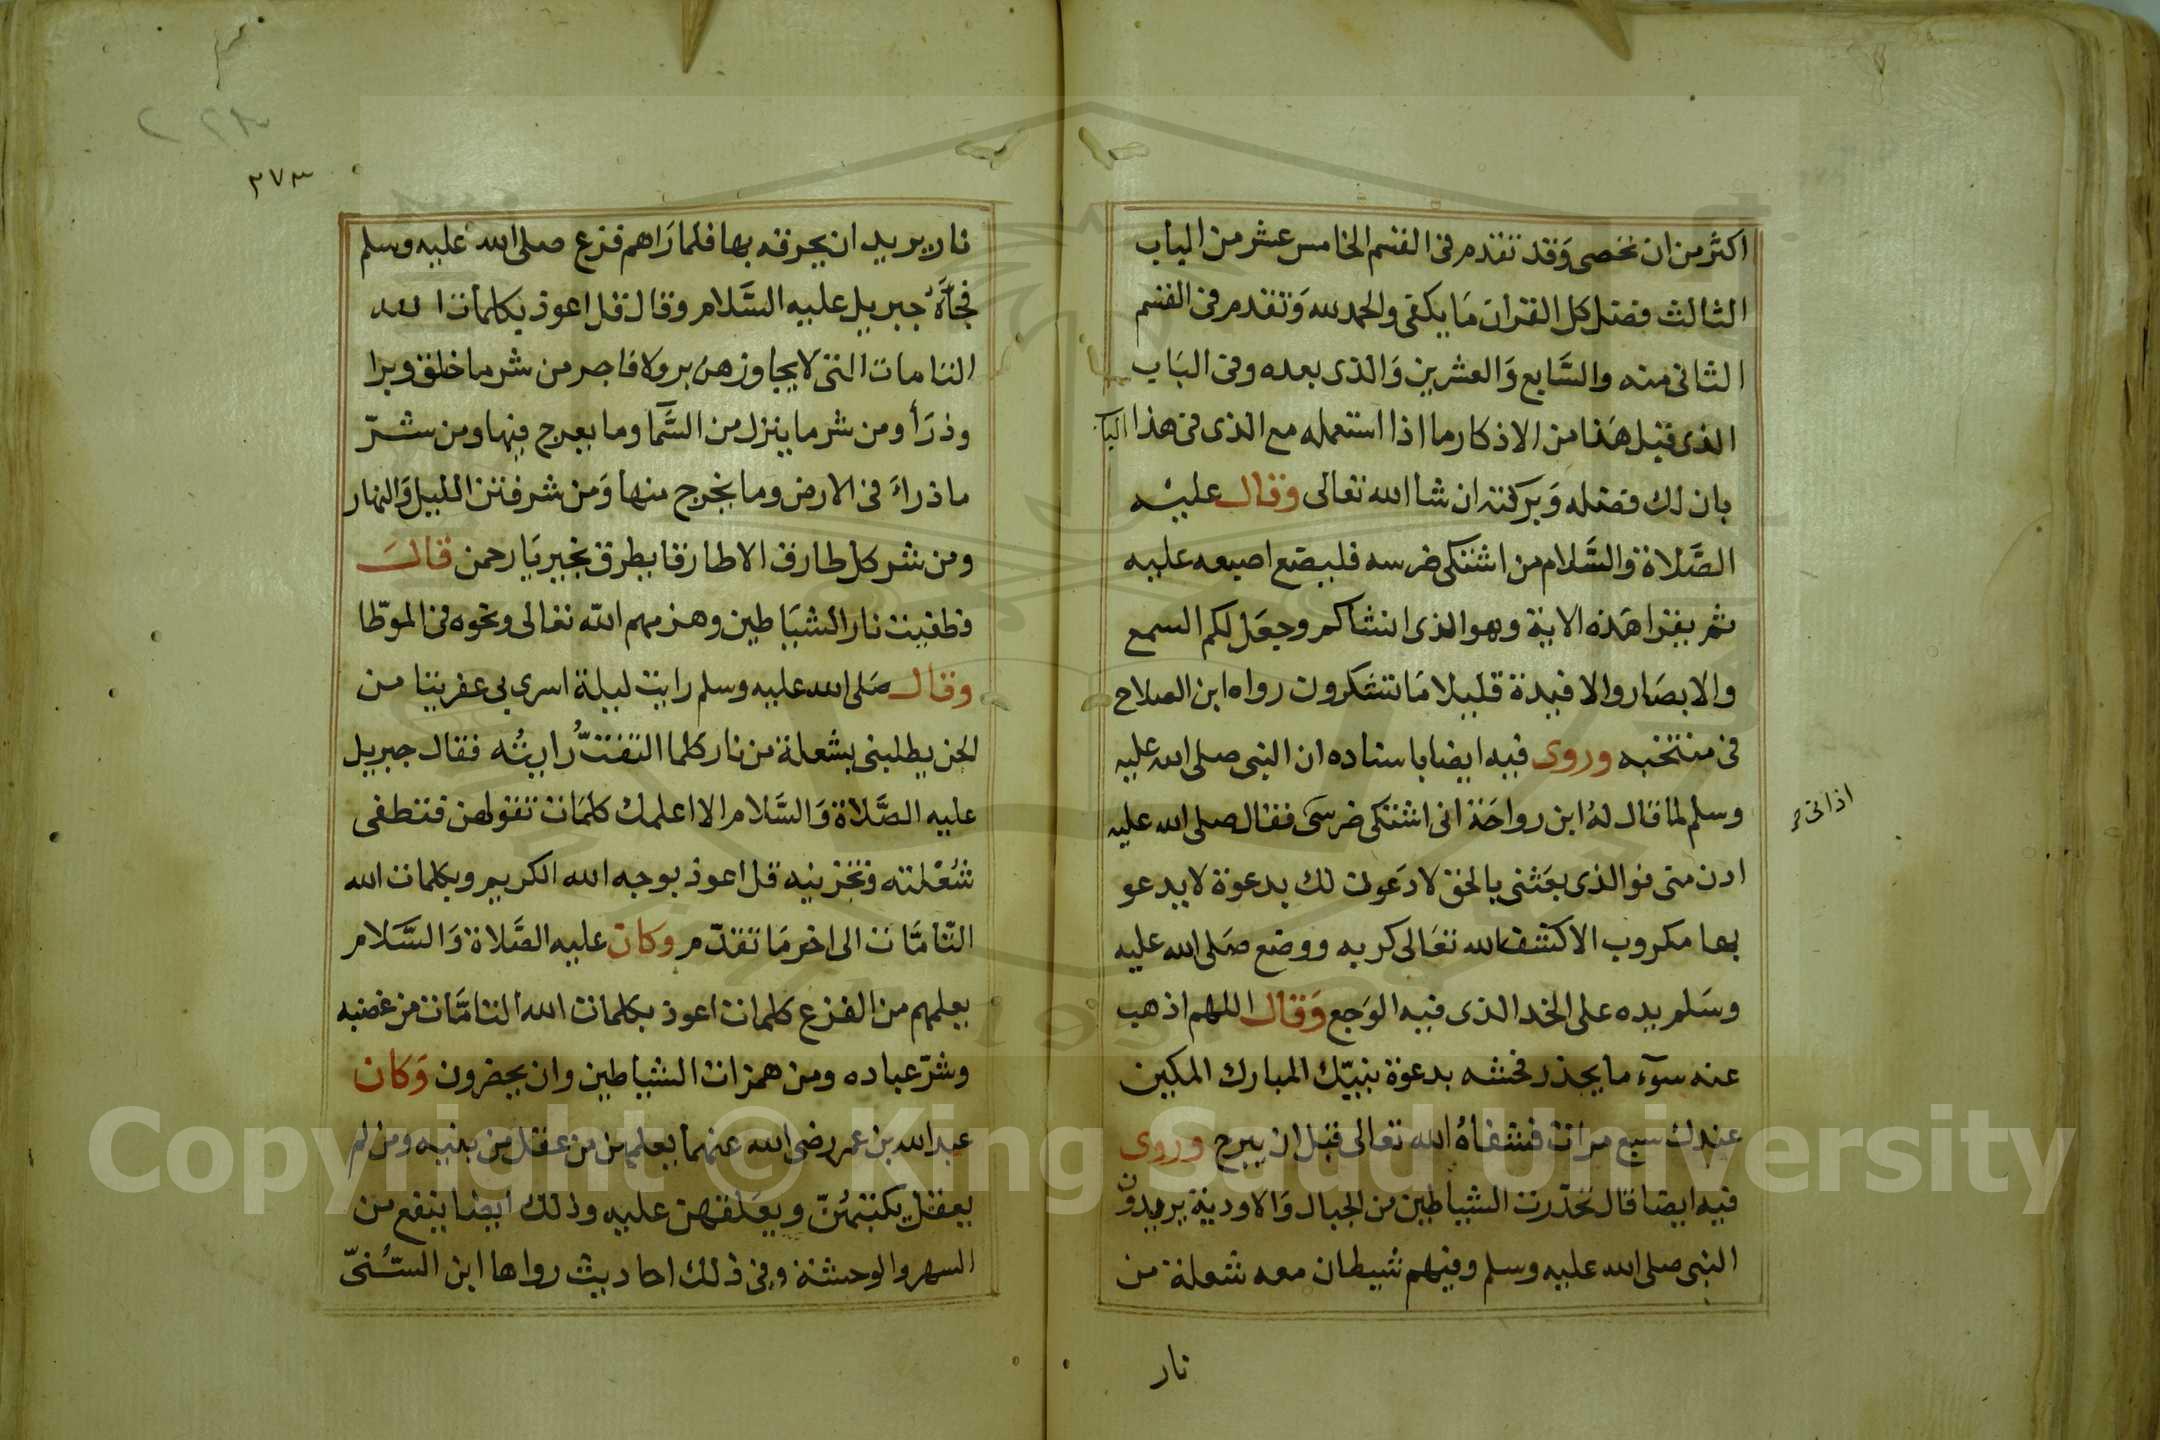 اكثر من ان تحصى وَقد تقدم فى القسم الخامس عشر من الباب
الثالث فضل كل القران مَا يكفى والحمد لله وَتقدم فى القسم
الثانى منه والسَّابع وَالعشرين وَالذى بعده وفى البَاب
الذى قبل هَذا من الاذكار ما اذا استعمله مع الذى فى هذا الباب
بان لك فضله وَبركته ان شا الله تعالى وَقال عليْه
الصَّلاة وَالسَّلام من اشتكى ضرسه فليضع اصبعه عليه
ثم يقرا هَذه الاية وهو الذى انشاكم وجعَل لكم السمع
والابصَار والافيدة قليلا مَا تشكرون رواه ابن الصلاح
فى منتخبه وروى فيه ايضا باسناده ان النبى صلى الله عليه
وسلم لما قال لهُ ابن رواحَة انى اشتكى ضرسى فقال صلى الله عليه
ادن منى فو الذى بعَثنى بالحق لادعَون لك بدعوة لا يدعو
بها مكروب الا كشف الله تعَالى كربه ووضع صَلى الله عليه
وسَلم يده على الخد الذى فيه الوَجع وَقال اللهم اذهب
عنه سوٓء ما يجد وفحشه بدعوة نبيّك المبارك المكين
عندك سبع مرات فشفاهُ الله تعالى قبل ان يبرح وروى
فيه ايضا قال تحدّرت الشياطين من الجبال وَالاودية يريدون
النبى صلى الله عليه وسلم وفيهم شيطان معه شعلة من
نار
٢٧٣
نار يريد ان يحرقه بها فلما رَاهم فزع صلى الله عليه وسلم
فجاءَهُ جبريل عليه السَّلام وقال قل اعوذ بكلمات الله
التامات التى لا يجاوزهن بر ولا فاجر من شر ما خلق وبرا
وذرَأ ومن شر ما ينزل من السَّمآ وما يعرج فيها ومن شرّ
ما ذراءَ فى الارض وما يخرج منها وَمن شر فتن الليل وَالنهار
ومن شر كل طارق الا طارقا يطرق بخير يَا رحمن قالَ
فطفيت نار الشيَاطين وهزمهم الله تعالى ونحوه فى الموطّا
وقال صَلى الله عليه وسلم رايت ليلة اسرى بى عفريتا من
الجن يطلبنى بشعلة من نار كلما التفتُّ رايتُه فقال جبريل
عليه الصَّلاة وَالسَّلام الا اعلمك كلمَات تقولهن فتنطفى
شُعْلته وتخزينه قل اعوذ بوجه الله الكريم وبكلمات الله
التّامَّات الى اخر مَا تقدّم وكان عليه الصَّلاة وَالسَّلام
يعلمهم من الفزع كلمات اعوذ بكلمات الله التامَّات من غضبه
وشرّ عباده ومن همزات الشياطين وان يحضرون وَكان
عبد الله بن عمر رضى الله عنهما يعلمهن من عقل من بنيه ومن لم
يعقل يكتبهُنّ ويعَلقهن عليه وذلك ايضا ينفع من
السهر والوحشة وفى ذلك احاديث رواها ابن السُّنىّ
Copyright © King Saud University